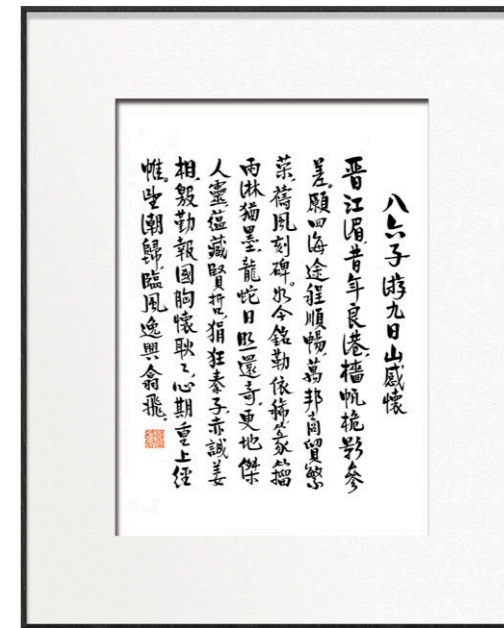 八六子 游九日山感懷
晋江湄昔年良港檣帆桅影參
差願四海途程順暢萬邦商貿繁
榮禱風刻碑如今銘勒依稀篆籀
雨淋猶墨龍蛇日照還奇更地傑
人靈蘊藏賢哲狷狂秦子赤誠姜
相殷勤報國胸懷耿耿心期重上經
帷望潮歸臨風逸興翕飛